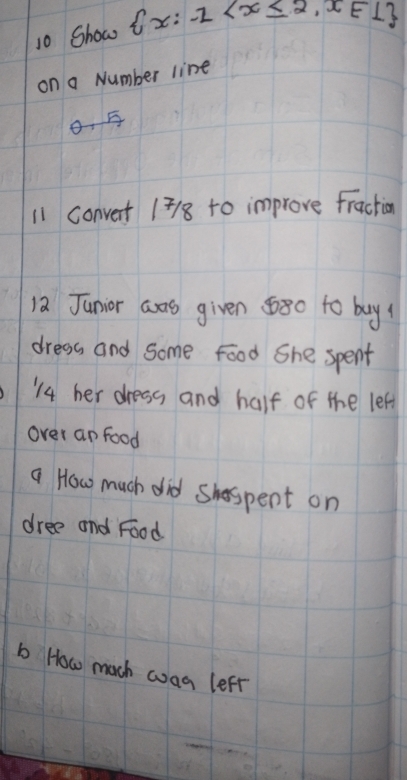 10 Show {x: -1 < x ≤ 2, x E I}
on a Number line
11 Convert 1 7/8 to improve Fraction
12 Junior was given $80 to buy 1
dress and Some Food She spent
1/4 her dress and half of the left
over an Food
a How much did She spent on
dree and Food
b How much waa left